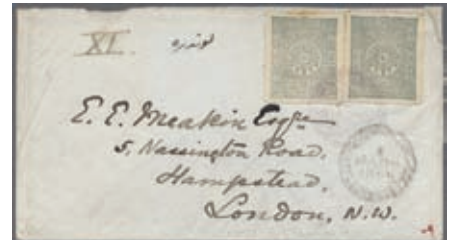 XI. لوندره
E. E. Meakin Esqre
5, Nassington Road,
Hampstead,
London, N.W.